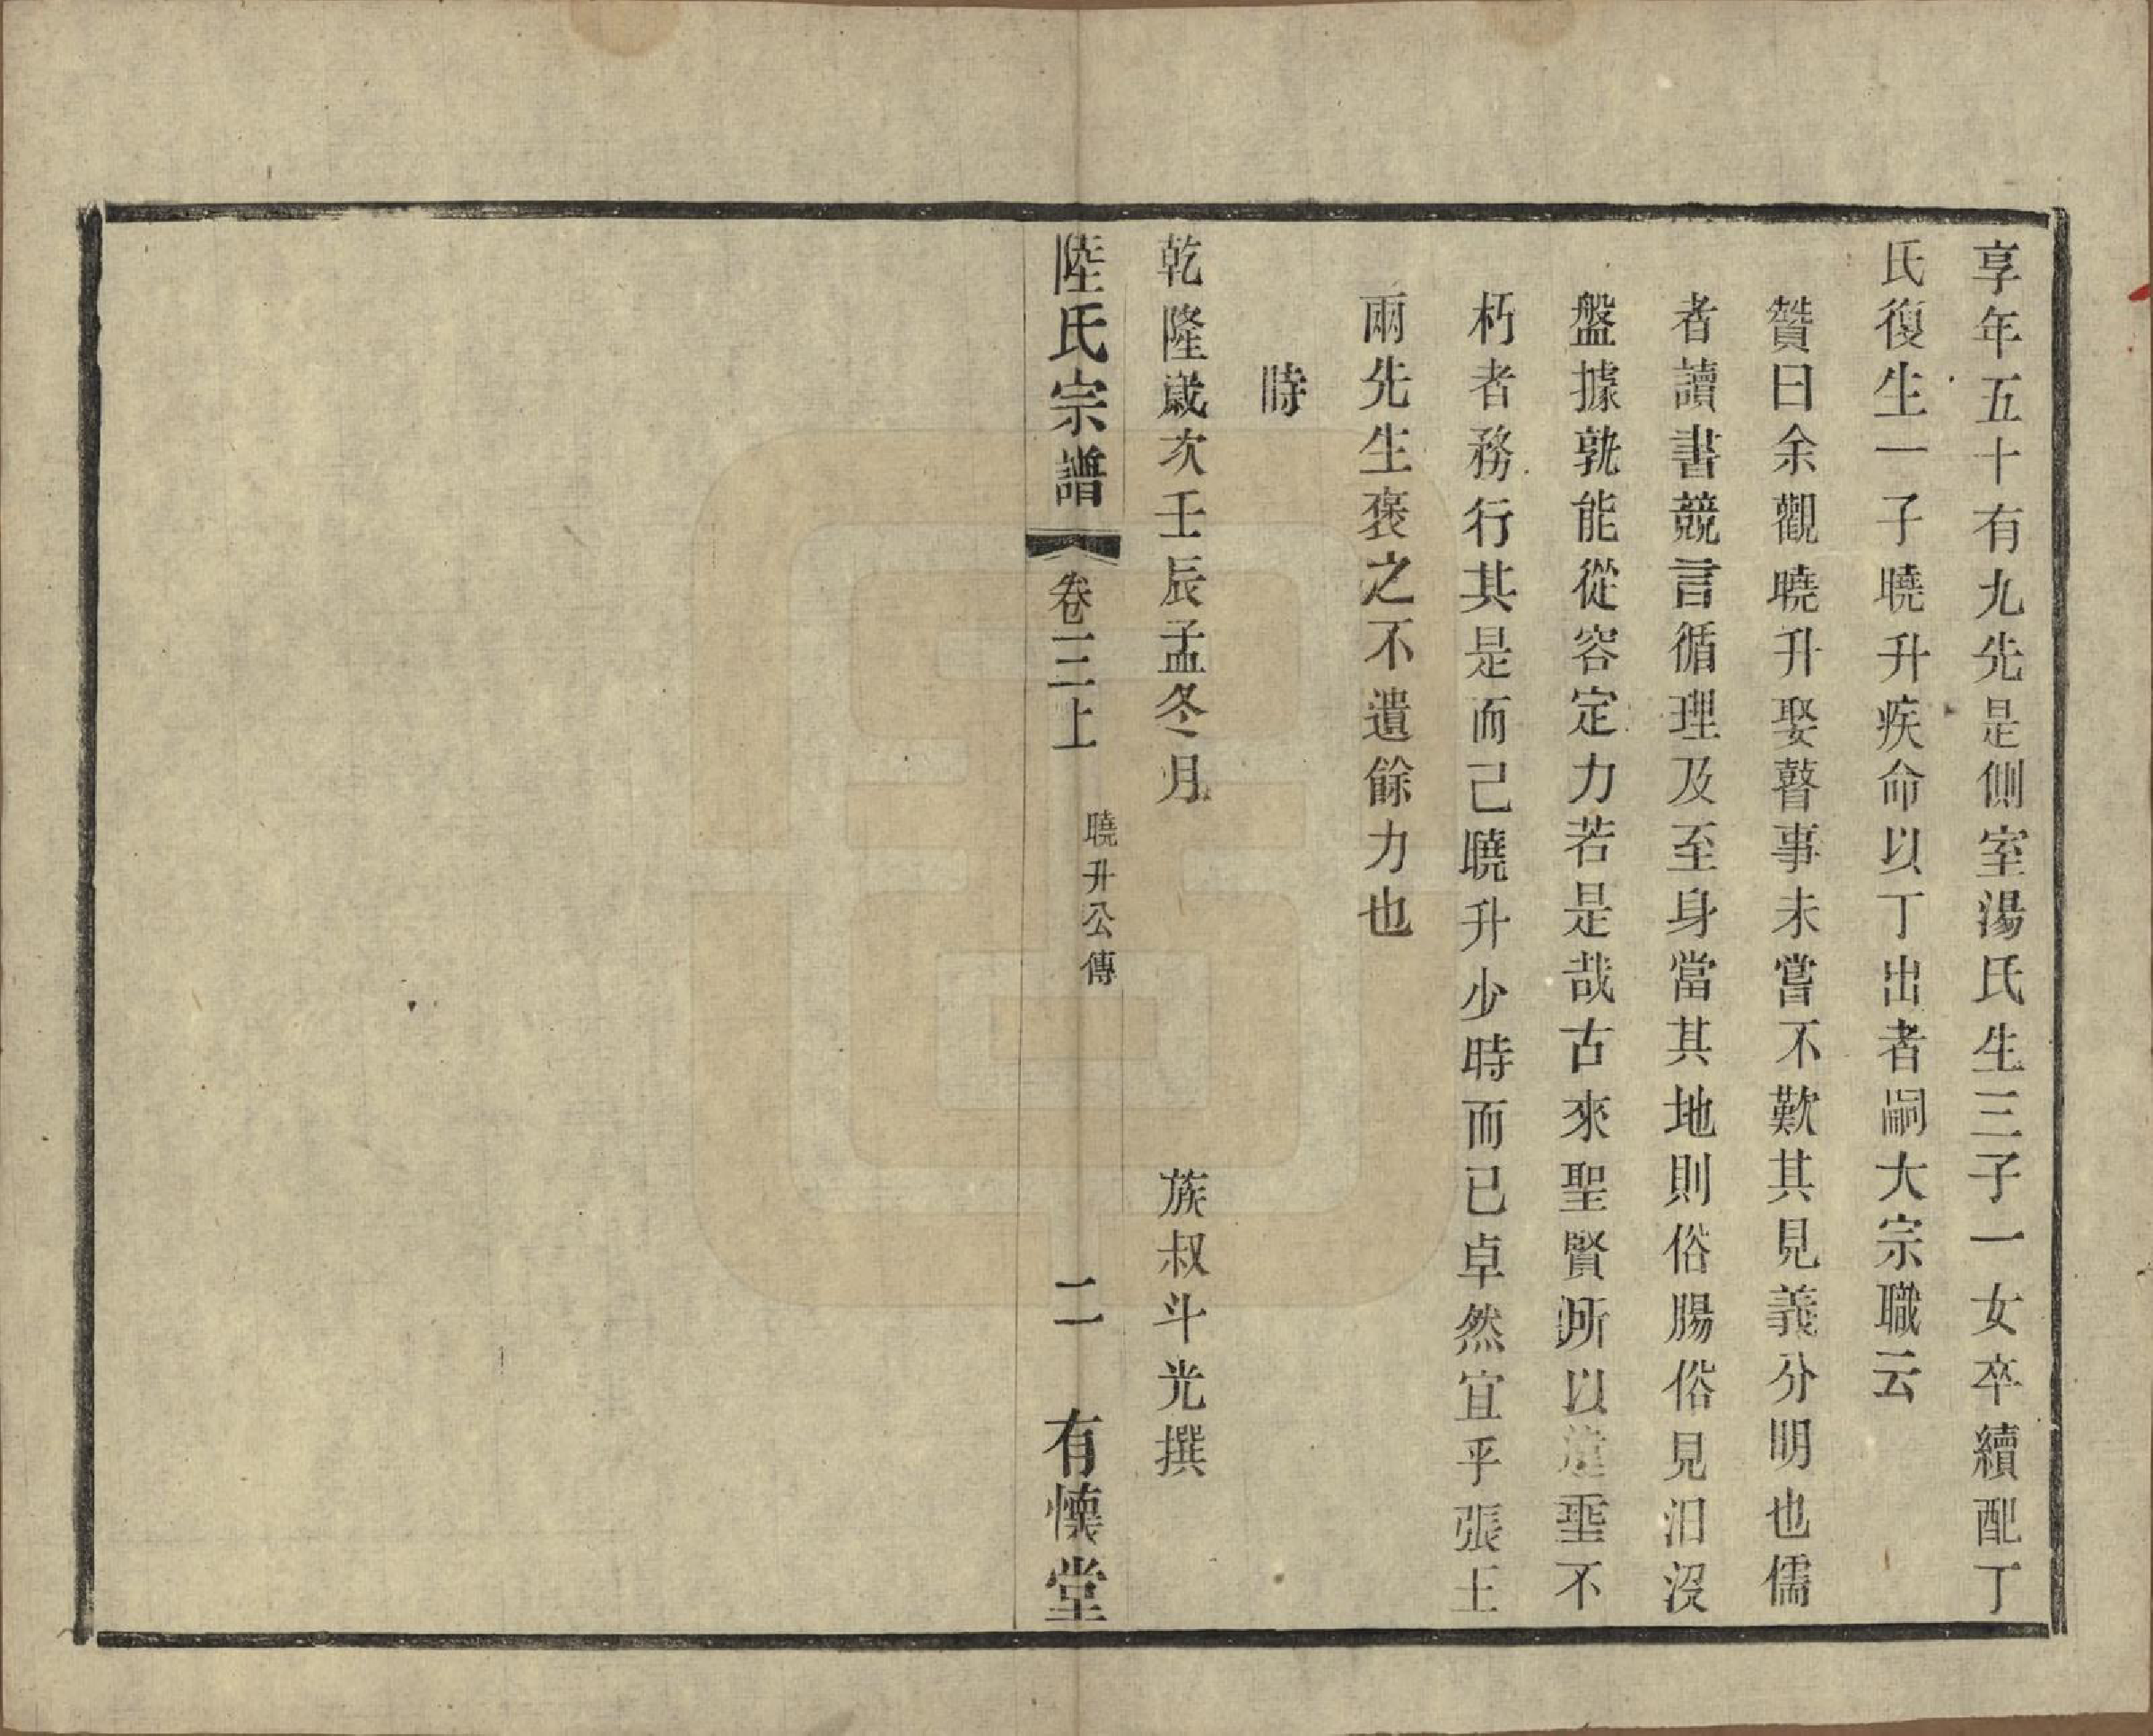 享年五十有九先是側室湯氏生三子一女卒續配丁
氏復生一子曉升疾命以丁出者嗣大宗職云
贊曰余觀曉升娶瞽事未嘗不歎其見義分明也儒
者讀書競言循理及至身當其地則俗腸俗見汨沒
盤據孰能從容定力若是哉古來聖賢所以 聖不
朽者務行其是而己曉升少時而已卓然宜乎張王
兩先生褒之不遺餘力也
時
乾隆歲次壬辰孟冬月 族叔斗光撰
陸氏宗譜 卷三上 曉升公傳 二 有懷堂